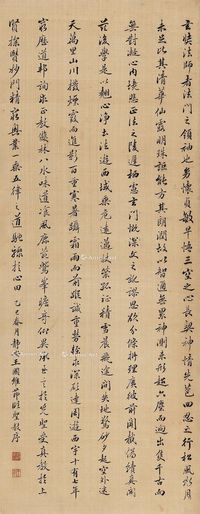 玄奘法師者法門之領袖也幼懷貞敏早悟三空之心長契神情先苞四忍之行松風水月
未足比其清華仙露明珠詎能方其朗潤故以智通無累神測未形超六塵而迥出隻千古而
無對凝心內境悲正法之陵遲栖慮玄門慨深文之訛謬思欲分條析理廣彼前聞截偽續真開
茲後學是以翹心淨土法遊西域乘危遠邁杖策孤征積雪晨飛途間失地驚砂夕起空外迷
天萬里山川撥煙霞而進影百重寒暑躡霜雨而前蹤誠重勞輕求深願達周遊西宇十有七年
窮歷道邦詢求正教雙林八水味道飡風鹿菀鷲峯瞻奇仰異承至言於先聖受真教於上
賢探賾妙門精窮奧業一乘五律之道馳驟於心田 乙巳春月靜安王國維節臨聖教序